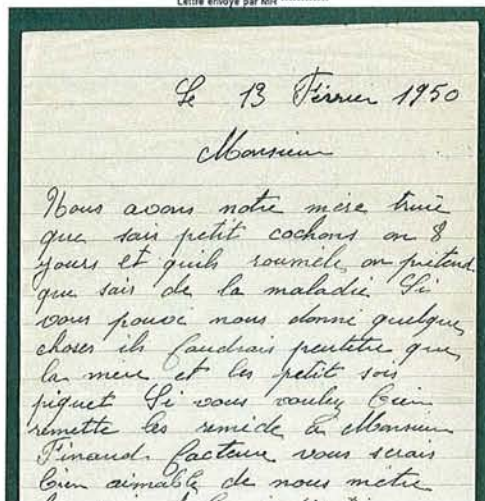 Lettre envoyé par MR
Le 13 Février 1950
Monsieur
Nous avons notre mère truie
que sais petit cochons on 8
jours et quils roumèle on prétend
que sais de la maladie Si
vous pouvé nous donné quelque
choses ils faudrais peutètre que
la mere et les petit sois
piquet Si vous vouley bien
remette les reméde à Monsieur
Finaud facteur vous serais
bien aimable de nous mètre